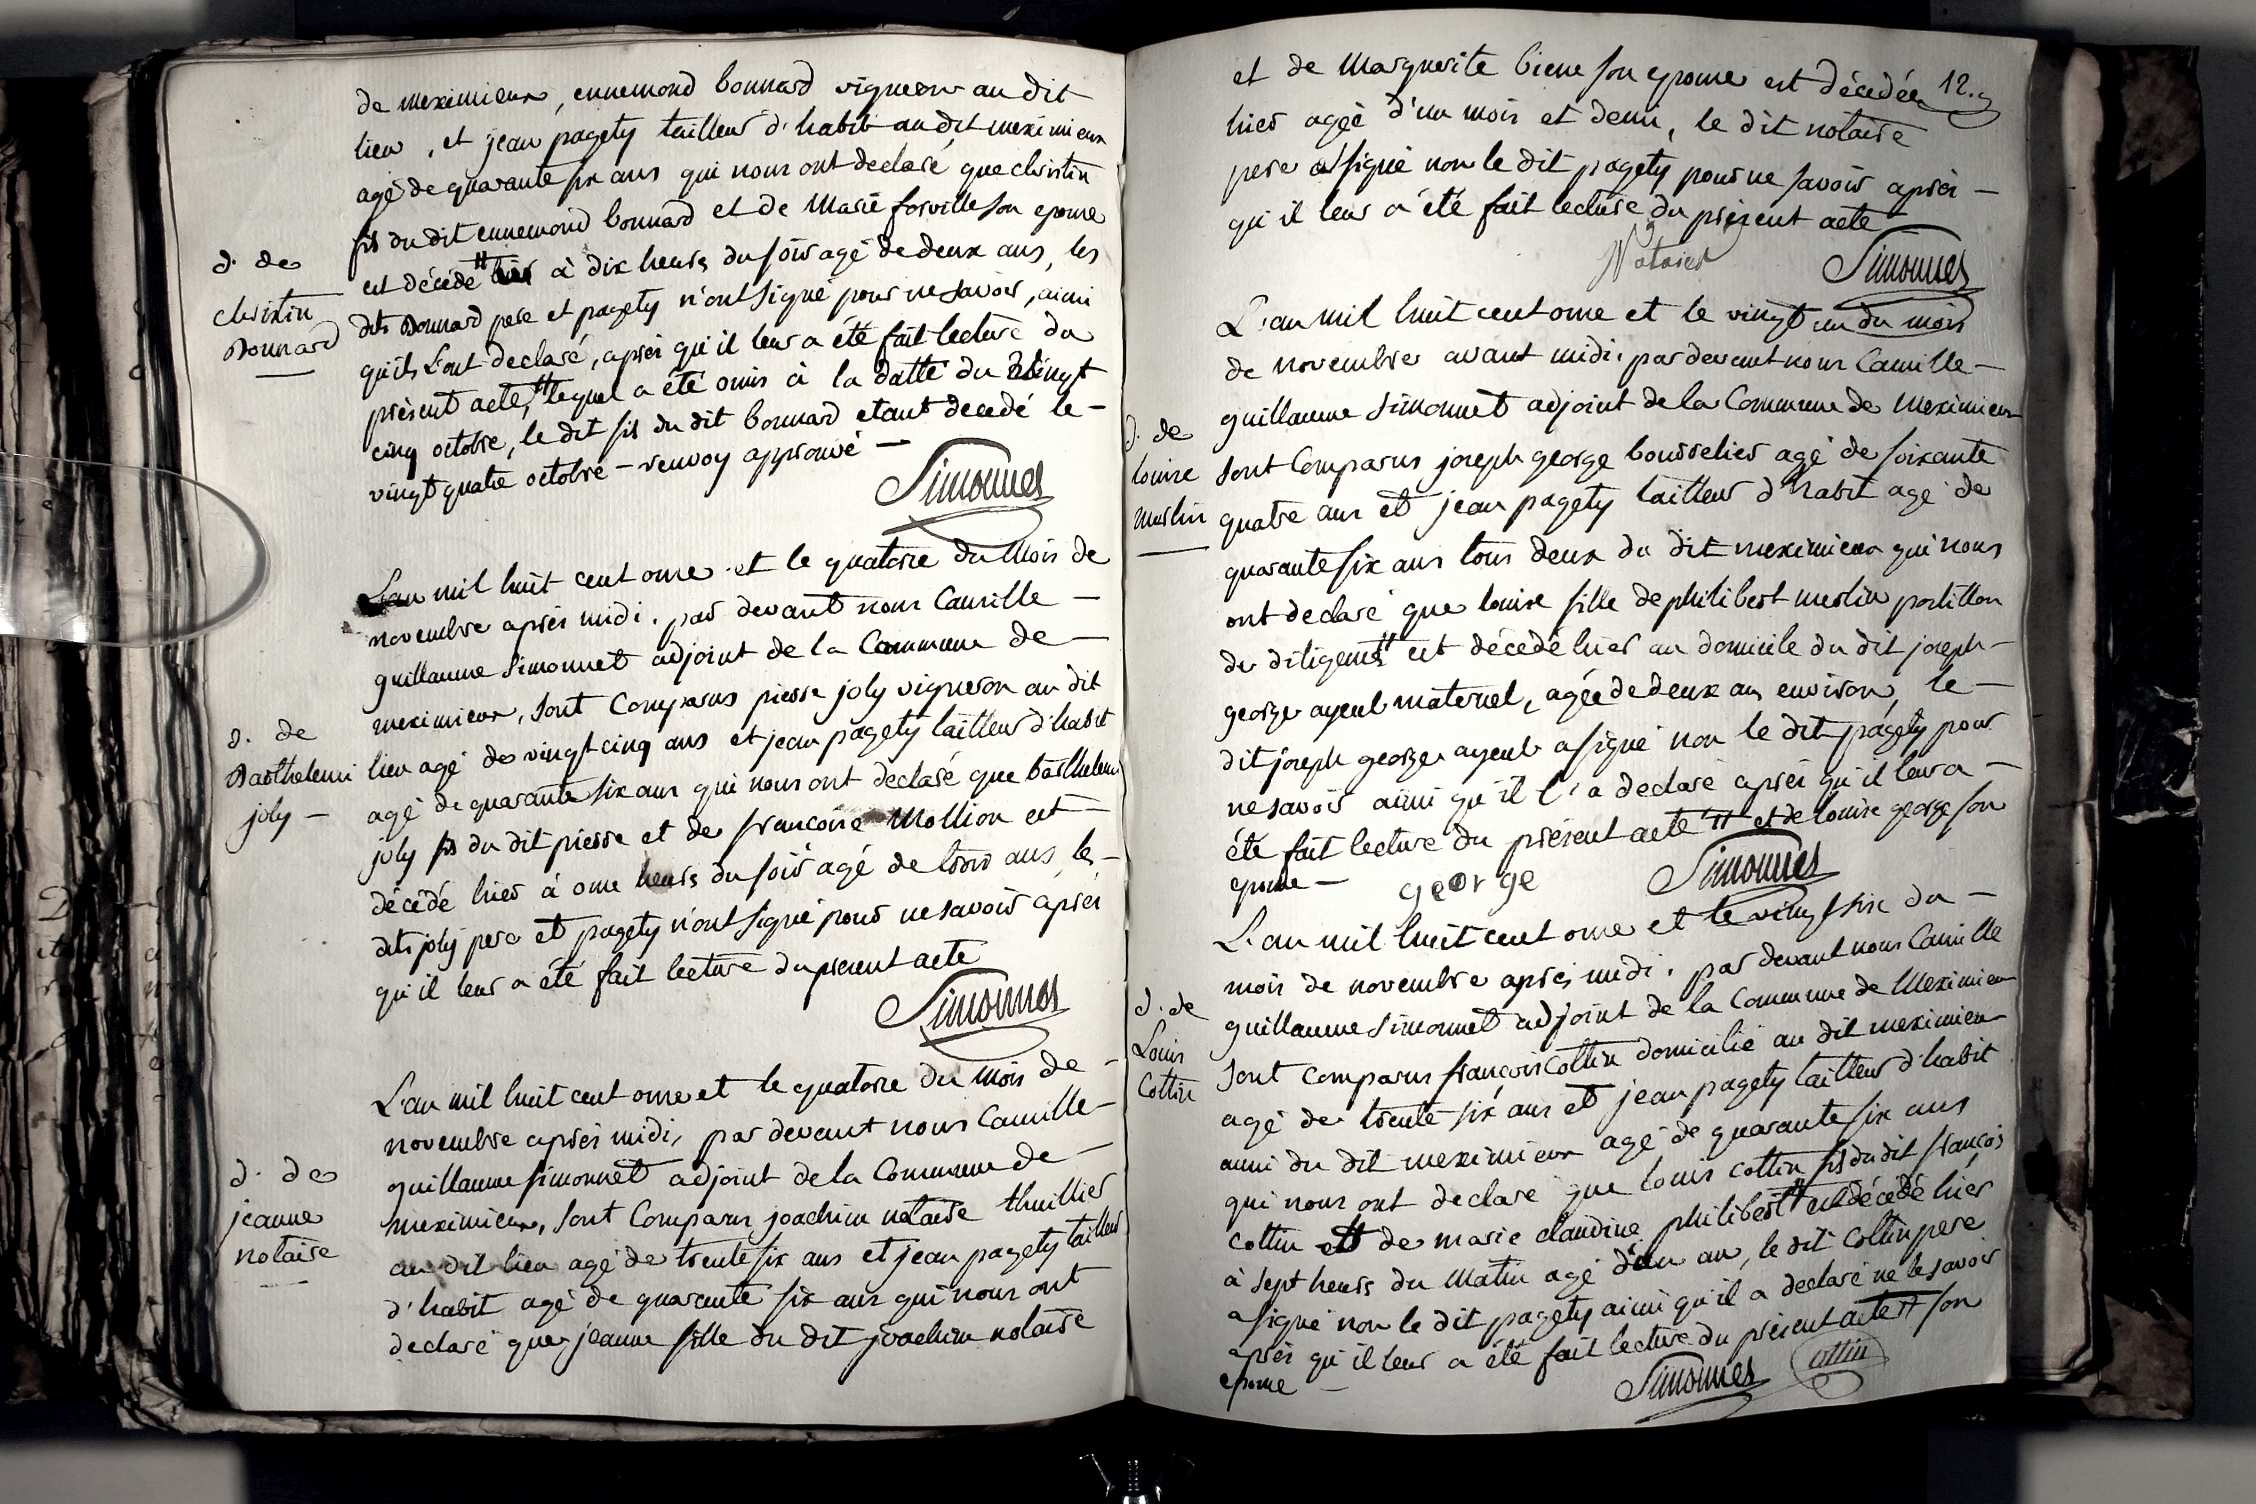 de meximieux, ennemond bonnard vigneron au dit
lieu, et jean pagety tailleur d'habit au dit meximieux
agé de quarante six ans qui nous ont declaré que christin
fils du dit ennemond bonnard et de Marie forville son epouse
est décédé " à dix heures du soir agé de deux ans, les
d. de
christin
Bonnard
dits Bonnard pere et pagety n'ont signé pour ne savoir, ainsi
qu'ils L'ont declaré, après qu'il leur a été fait lecture du
présent acte, " lequel a été omis à la datte du vingt
cinq octobre, le dit fils du dit bonnard etant decedé le -
vingt quatre octobre - renvoy approuvé -
Simonnet
L'an mil huit cent onze et le quatorze du Mois de
novembre après midi, par devant nous Camille -
guillaume Simonnet adjoint de la Commune de -
meximieux, sont Comparus pierre joly vigneron au dit
d. de
Barthelemi
joly -
lieu agé de vingt cinq ans et jean pagety tailleur d'habit
agé de quarante six ans qui nous ont declaré que barthelemi
joly fils du dit pierre et de francoise Mollion est -
décédé hier à onze heures du soir agé de trois ans, les -
dits joly pere et pagety n'ont signé pour ne savoir après
qu'il leur a été fait lecture du present acte
Simonnet
L'an mil huit cent onze et le quatorze du Mois de -
novembre après midi, par devant nous Camille -
guillaume Simonnet adjoint de la Commune de -
d. de
jeanne
notaire
meximieux, sont Comparus joachim notaire thuillier
au dit lieu agé de trente six ans et jean pagety tailleur
d'habit agé de quarante six ans qui nous ont
declaré que jeanne fille du dit joachim notaire
12.
et de Marguerite biene son epouse est décédée
hier agée d'un mois et demi, le dit notaire
pere a signé non le dit pagety pour ne savoir après -
qu'il leur a été fait lecture du présent acte
Notaire
Simonnet
L'an mil huit cent onze et le vingt un du mois
de novembre avant midi, par devant nous Camille -
guillaume Simonnet adjoint de la Commune de Meximieux
d. de
louise
merlin
sont Comparus joseph george bourrelier agé de soixante
quatre ans et jean pagety tailleur d'habit agé de
quarante six ans tous deux du dit meximieux qui nous
ont declaré que louise fille de philibert merlin postillon
de diligence " est décédé hier au domicile du dit joseph -
george ayeul maternel, agée de deux ans environ, le -
dit joseph george ayeul a signé non le dit pagety pour
ne savoir ainsi qu'il l'a declaré après qu'il leur a -
été fait lecture du présent acte " et de louise george son
epouse -
george
Simonnet
L'an mil huit cent onze et le vingt six du -
mois de novembre après midi, par devant nous Camille
guillaume Simonnet adjoint de la Commune de Meximieux
d. de
Louis
Cottin
sont comparus francois Cottin domicilié au dit meximieux
agé de trente six ans et jean pagety tailleur d'habit
aussi du dit meximieux agé de quarante six ans
qui nous ont declaré que louis cottin fils du dit françois
cottin et de marie claudine philibert " est décédé hier
à sept heures du Matin agé d'un an, le dit Cottin pere
a signé non le dit pagety ainsi qu'il a declaré ne le savoir
après qu'il leur a été fait lecture du présent acte " son
epouse -
Simonnet
Cottin